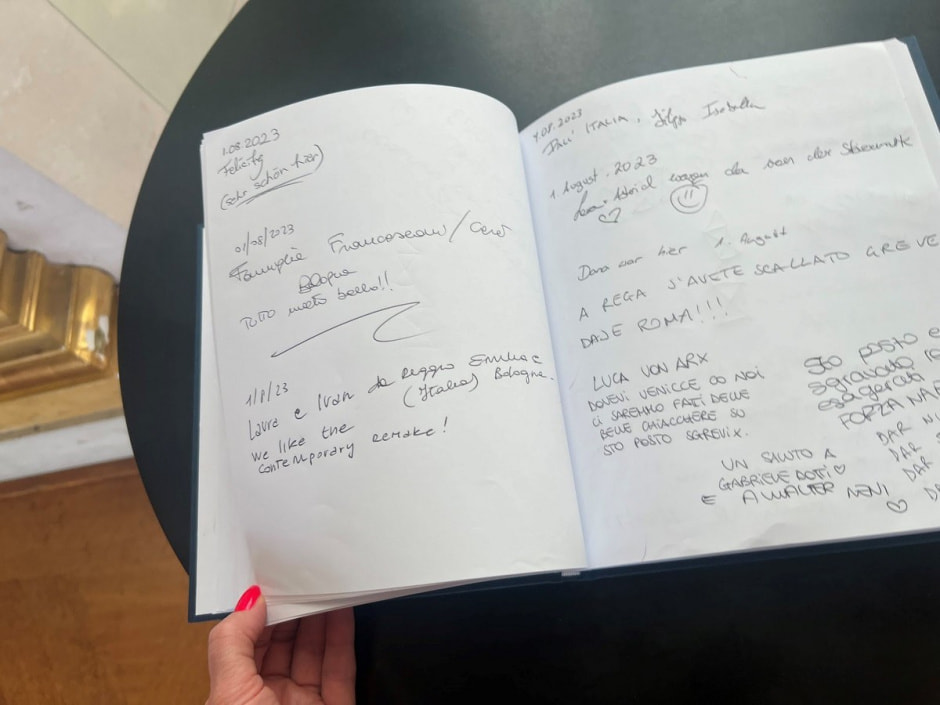 1.08.2023
Felicity
(sehr schön hier)
01/08/2023
Famiglia Francosconi/Ceret
Bologna
Tutto molto bello!!
1/8/23
Laura e Ivan da Reggio Emilia e
(Italia) Bologna.
We like the
contemporary remake!
1.08.2023
Dall' ITALIA, Isabella
1 August. 2023
Astrid wagen da van der
Dara war hier 1. August
A REGA S'AVETE SCALLATO GREVE
DAJE ROMA!!!
LUCA VON ARX
DOVEVI VENICCE CO NOI
CI SAREMMO FATI DELLE
BELLE CHIACCHERE SU
STO POSTO SGREVIX.
UN SALUTO A
GABRIELE DOTTI
E A WALTER NENI
STO POSTO E
sgravato
esagerati
FORZA NA
DAR NI
DAR
DAR